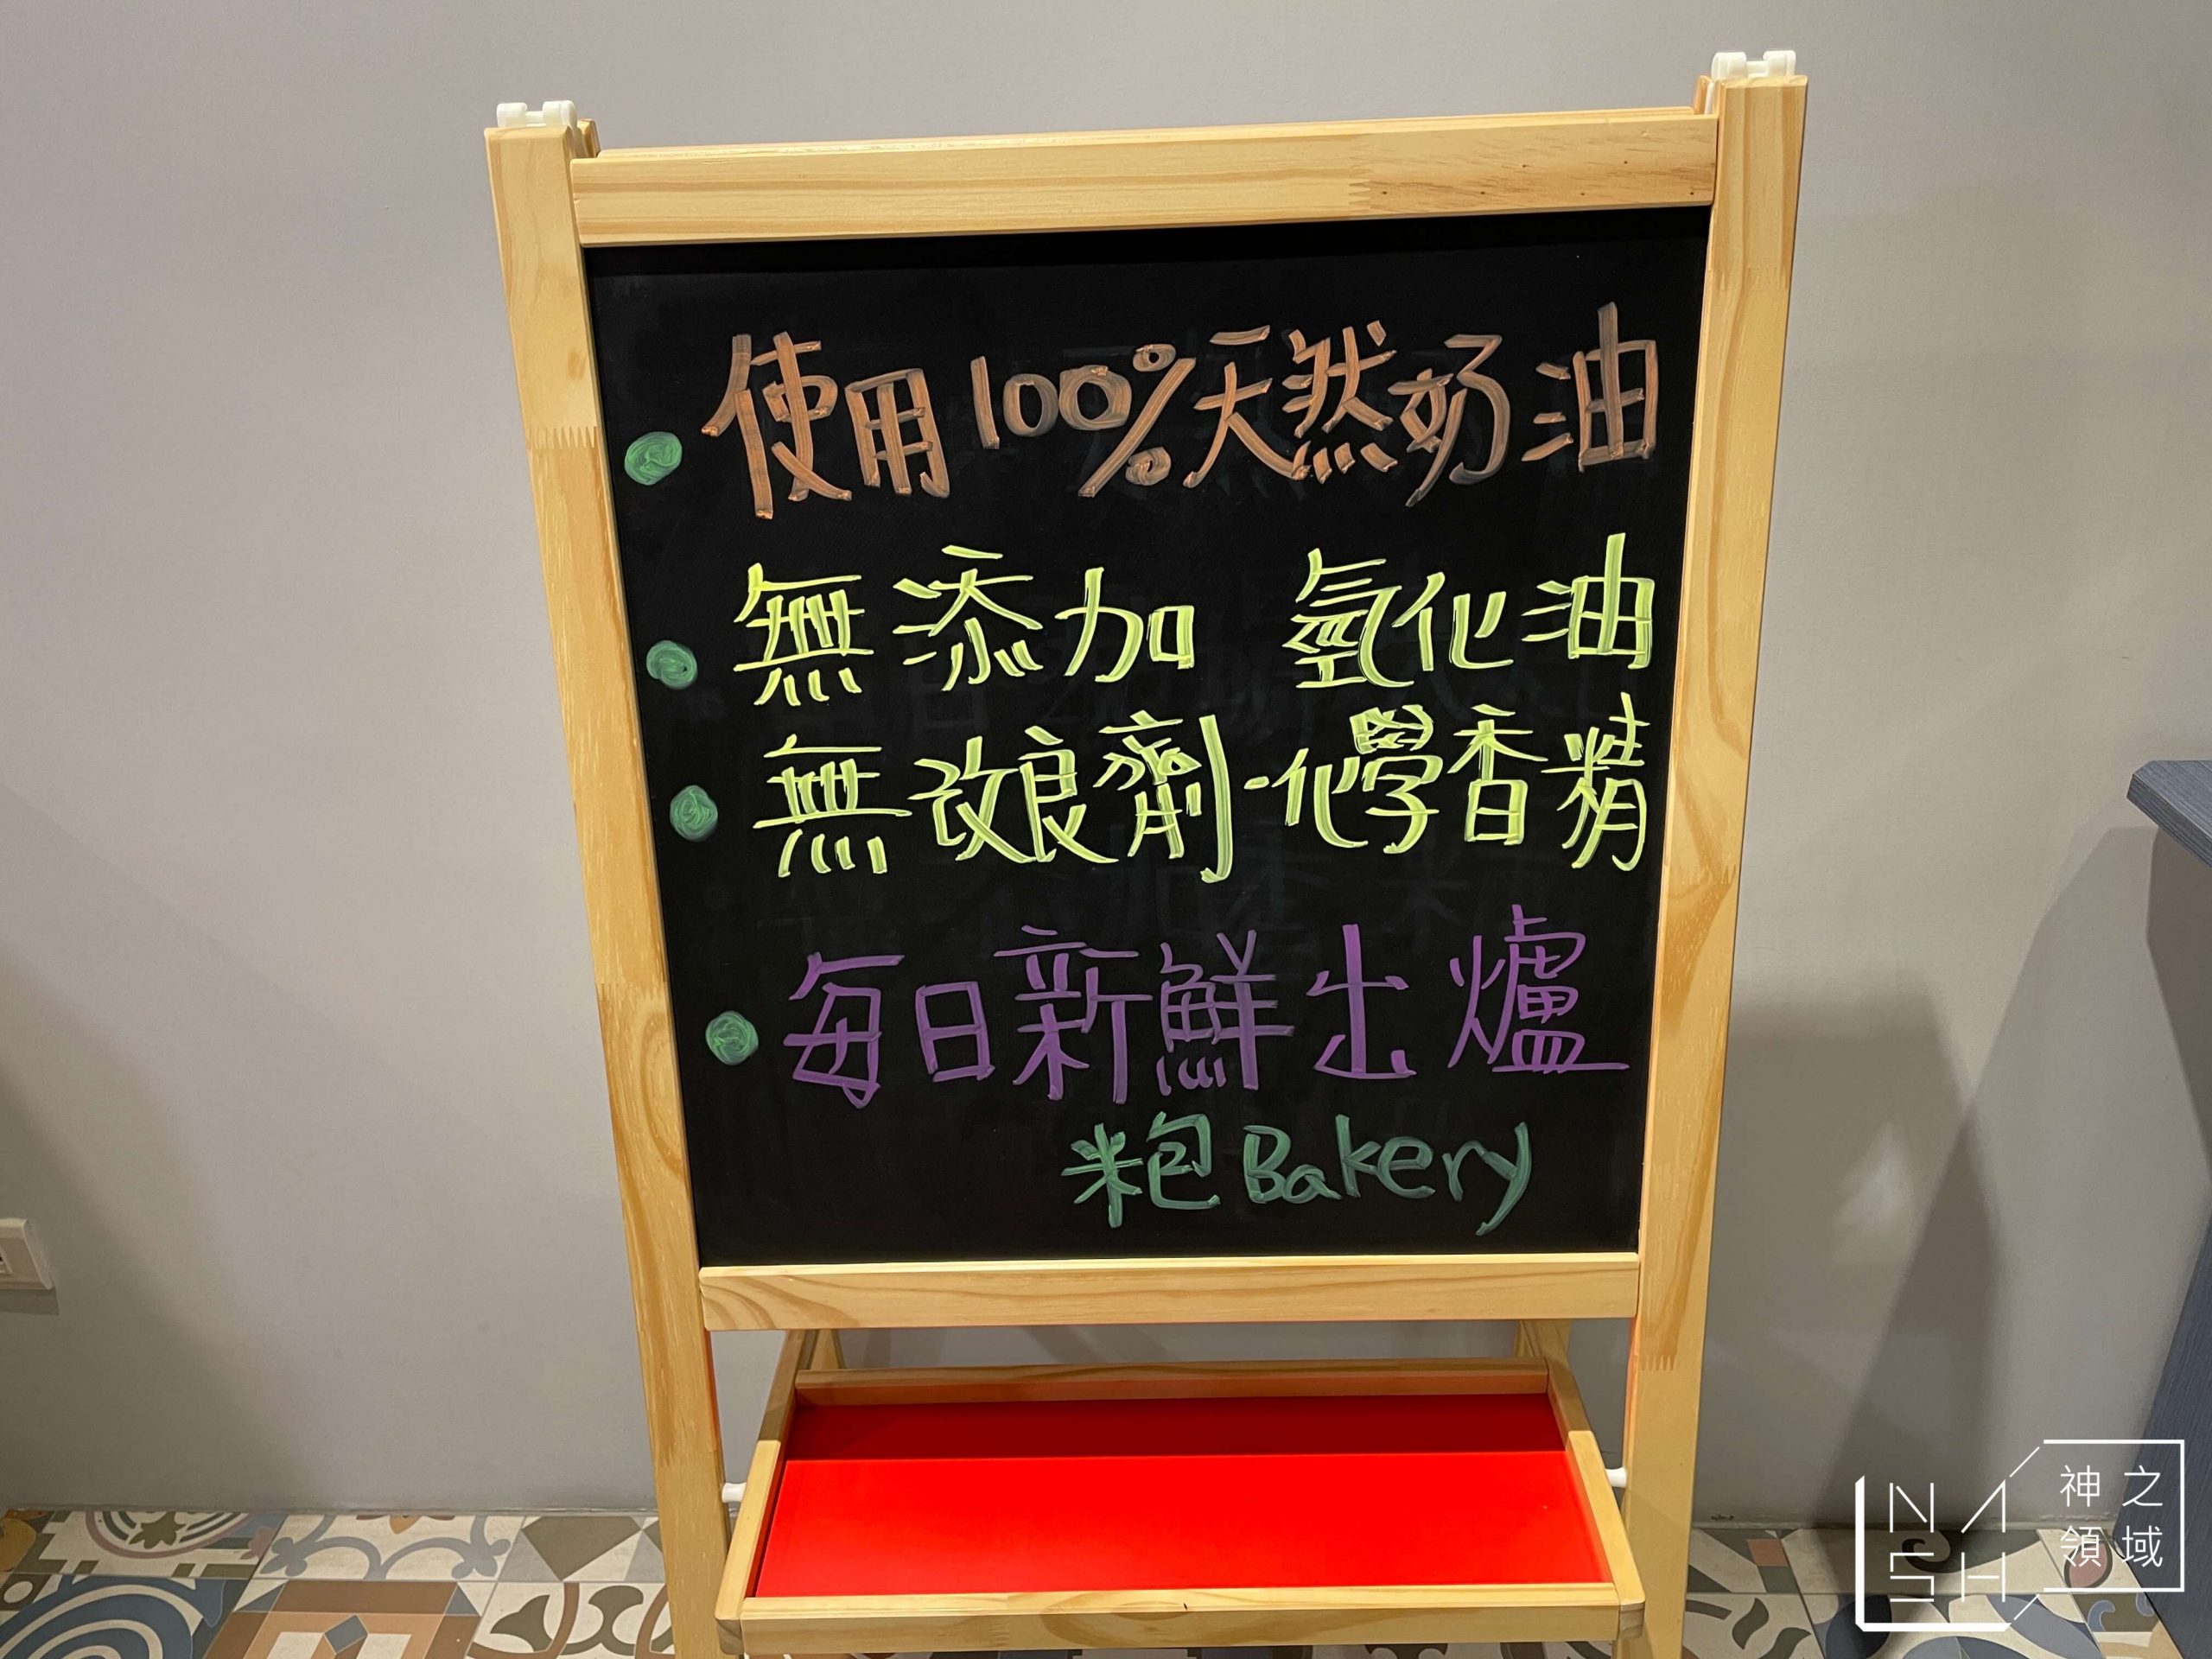 使用100%天然奶油
無添加 氫化油
無改良劑-化學香精
每日新鮮出爐
粨Bakery
NASH
神之領域